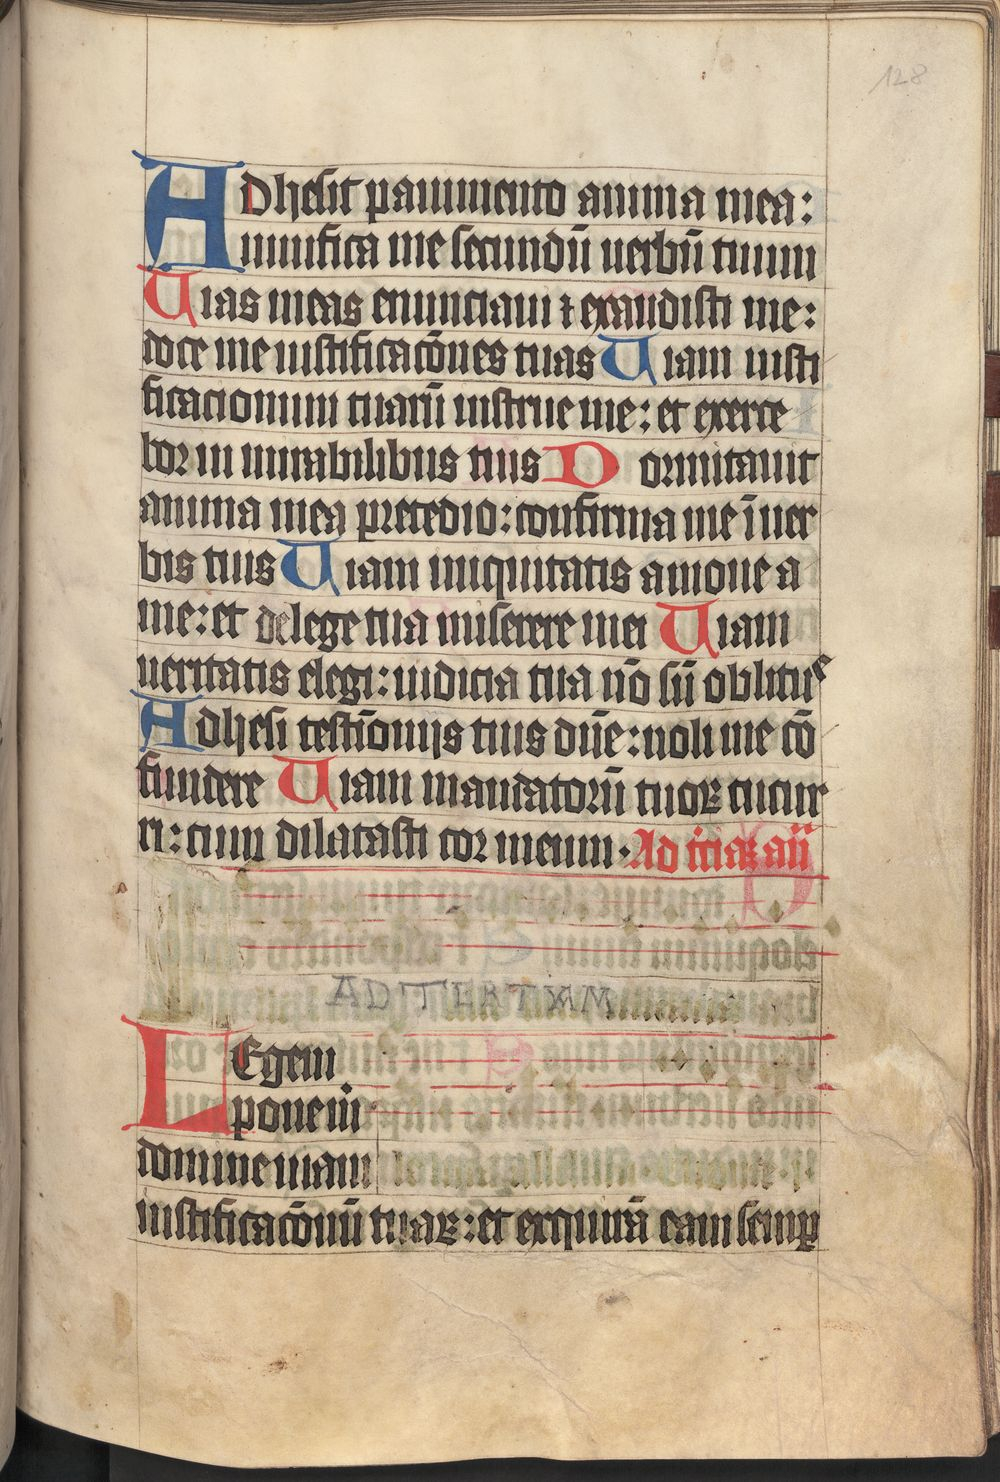 128
Adhesit pauimento anima mea:
uiuifica me secundū uerbū tuum
Uias meas enunciaui ⁊ exaudisti me:
doce me iustificacōnes tuas Uiam iusti
ficacionum tuarū instrue me: et exerce
bor in mirabilibus tuis Dormitauit
anima mea pretedio: confirma me ī uer
bis tuis Uiam iniquitatis amoue a
me: et delege tua miserere mei Uiam
ueritatis elegi: iudicia tua nō sū oblitus
Adhesi testīonijs tuis dn̄e: noli me cō
fundere Uiam mandatorū tuoꝝ cucur
ri: cum dilatasti cor meum. Ad
AD TERTIAM
LEgem
pone m̄
domine uiam
iustificacōnū tuaꝝ: et exquirā eam semꝑ